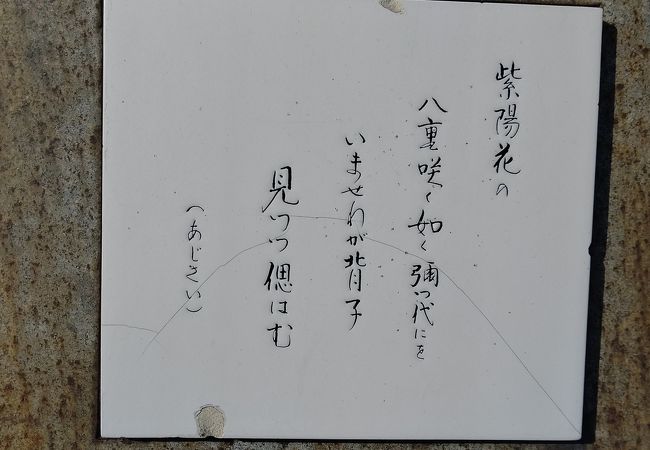 紫陽花の
八重咲く如く彌つ代にを
いませわが背子
見つつ偲はむ
(あじさい)